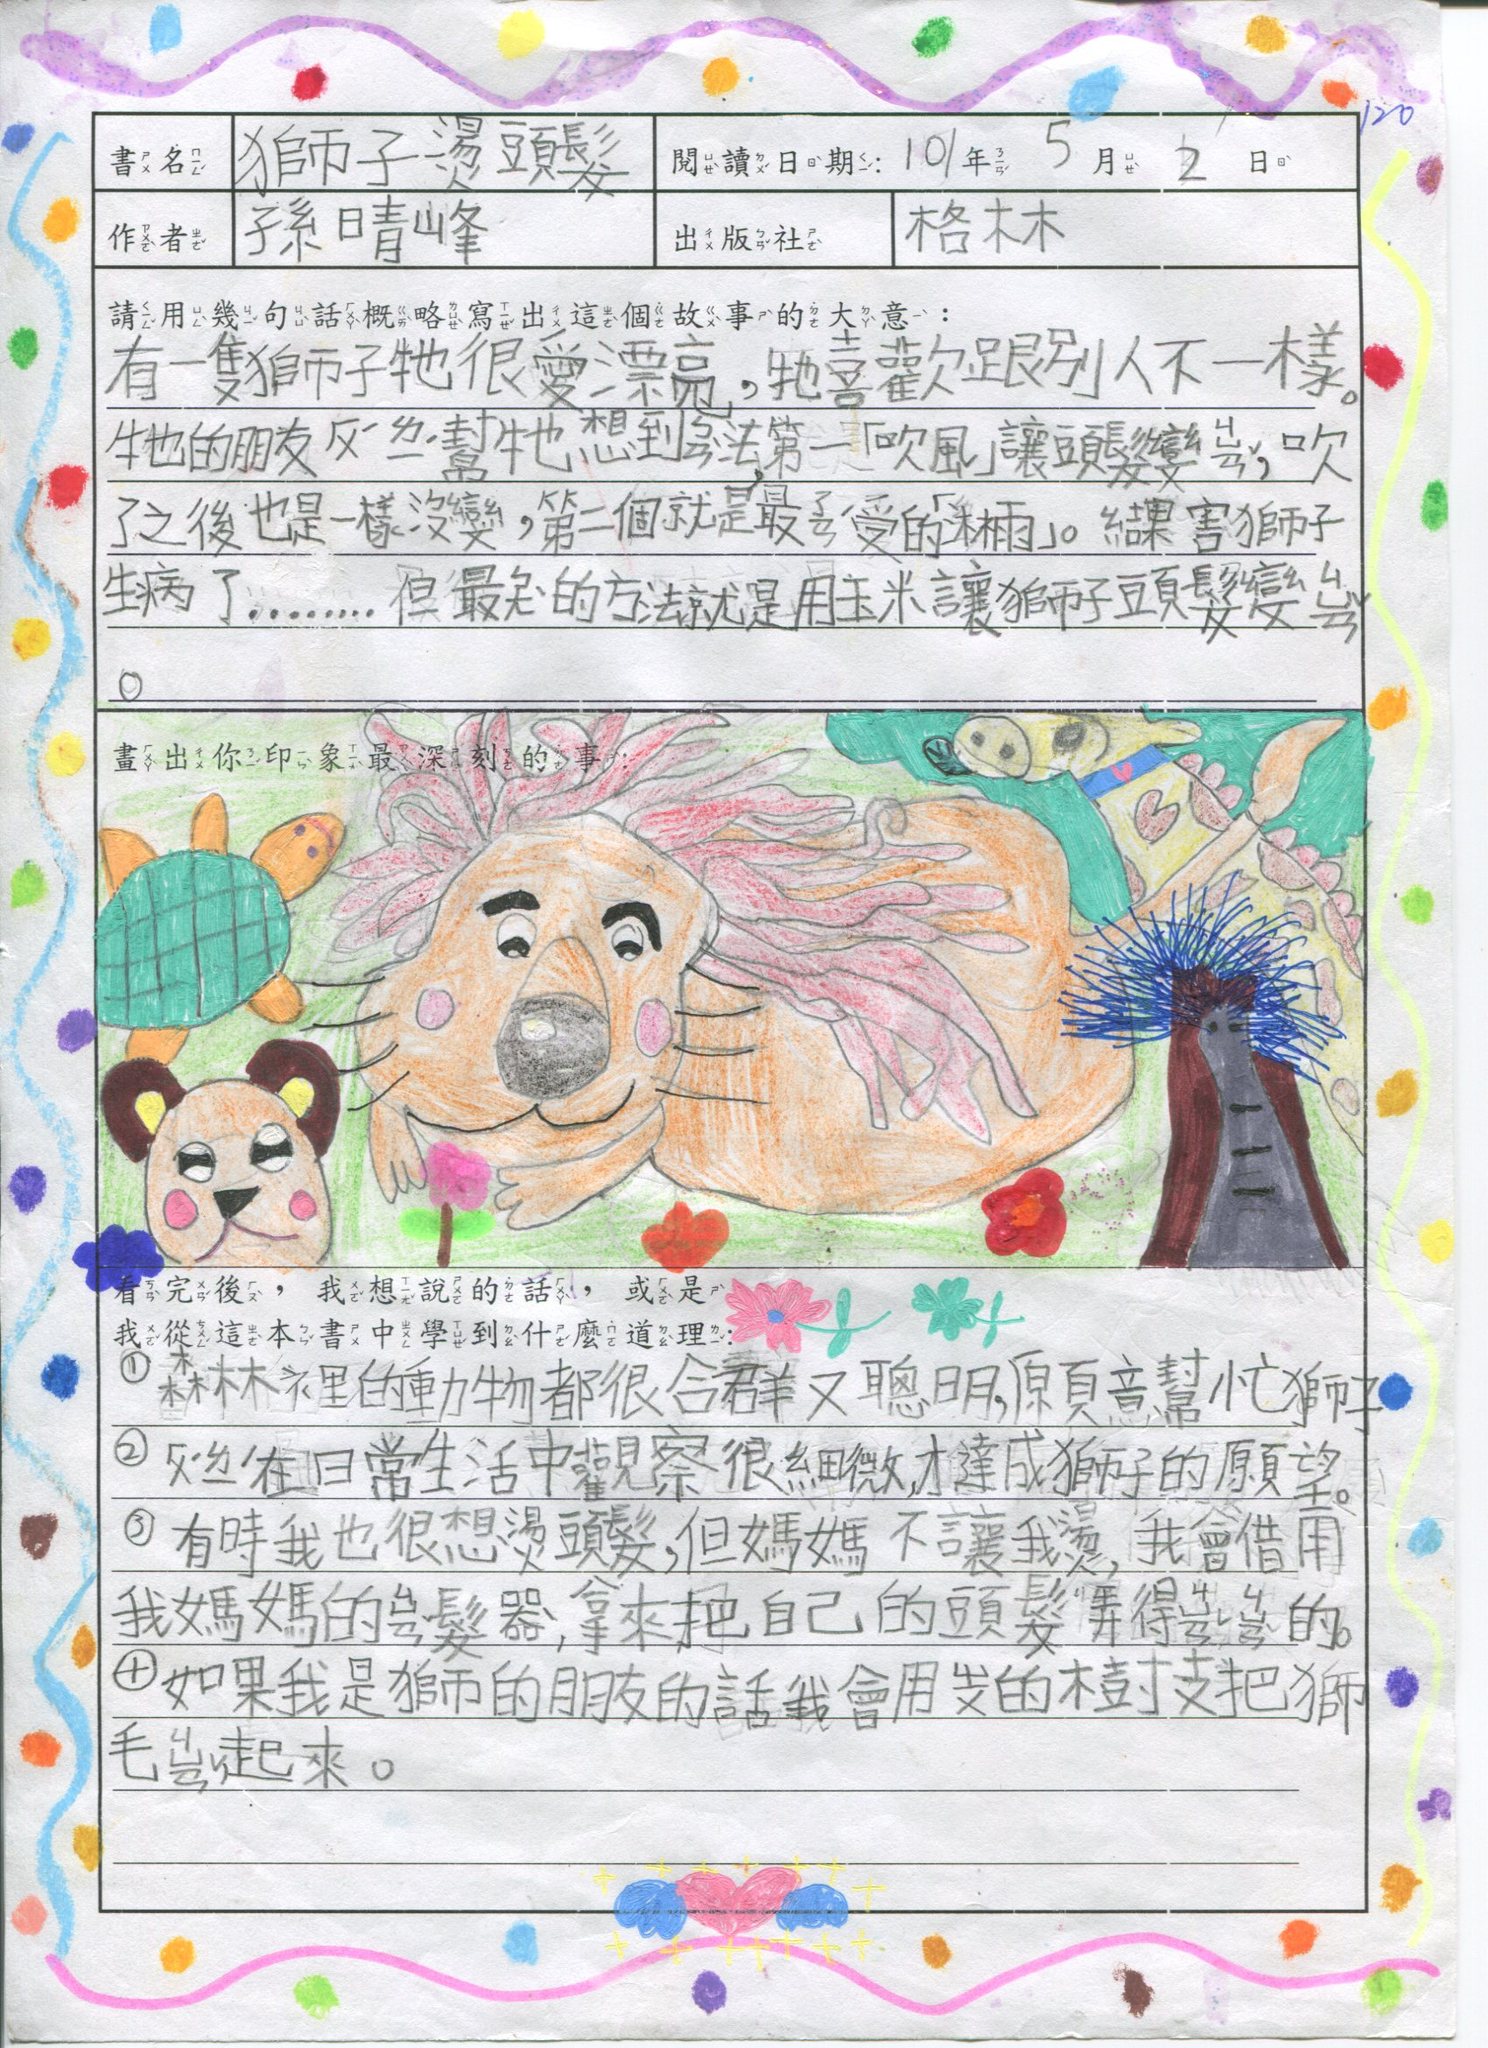 120
書名 獅子燙頭髮 閱讀日期：101年5月2日
作者 孫晴峰 出版社 格林
請用幾句話概略寫出這個故事的大意：
有一隻獅子牠很愛漂亮，牠喜歡跟別人不一樣。
牠的朋友ㄆㄤˊ幫牠想到ㄅㄢ法，第一「吹風」讓頭髮變ㄐㄩㄢˇ，吹
了之後也是一樣沒變，第二個就是最ㄋㄢˊ受的「淋雨」。結果害獅子
生病了………但最後的方法就是用玉米讓獅子頭髮變ㄐㄩㄢˇ
。
畫出你印象最深刻的事：
看完後，我想說的話，或是
我從這本書中學到什麼道理：
①森林裡的動物都很合群又聰明，願意幫忙獅子
②在日常生活中觀察很細微，才達成獅子的願望。
③有時我也很想燙頭髮，但媽媽不讓我燙，我會借用
我媽媽的ㄐㄩㄢˇ髮器，拿來把自己的頭髮弄得ㄐㄩㄢˇㄐㄩㄢˇ的。
④如果我是獅的朋友的話我會用的樹支把獅
毛ㄐㄩㄢˇ起來。